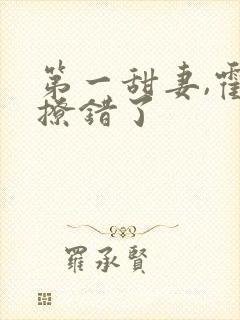 第一甜妻,霍
撩错了
羅承賢